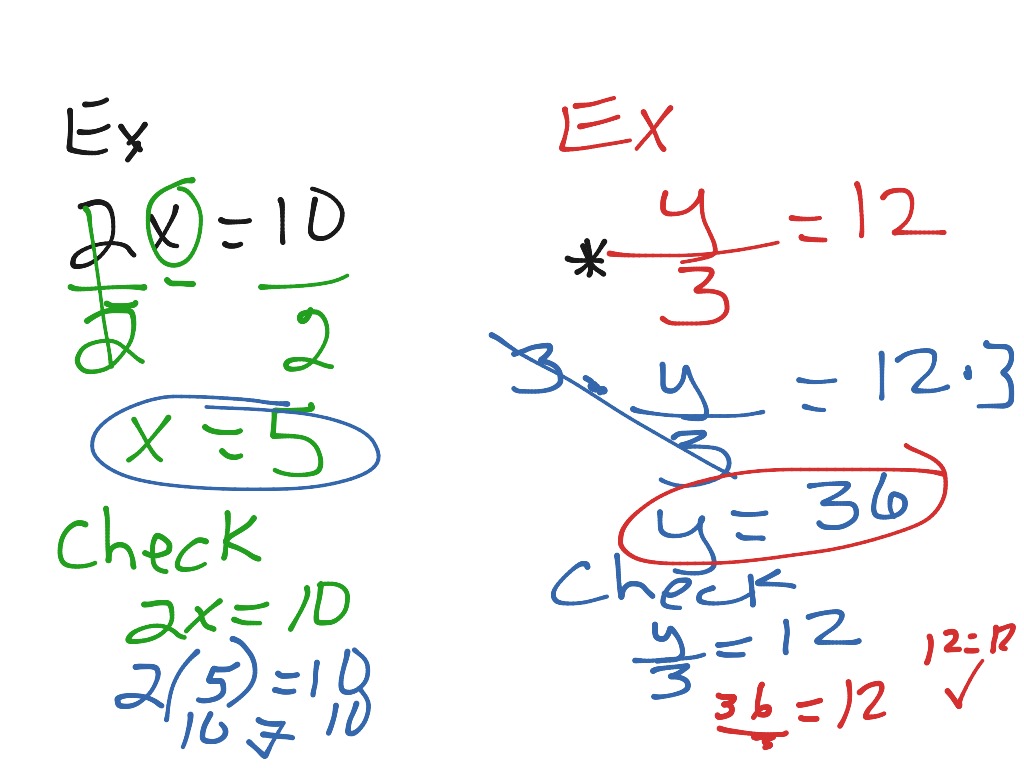 Ex
2x = 10
2 2
x = 5
check
2x = 10
2(5) = 10
10 = 10
Ex
* y/3 = 12
3 · y/3 = 12 · 3
y = 36
check
y/3 = 12
36/3 = 12
12 = 12 ✓